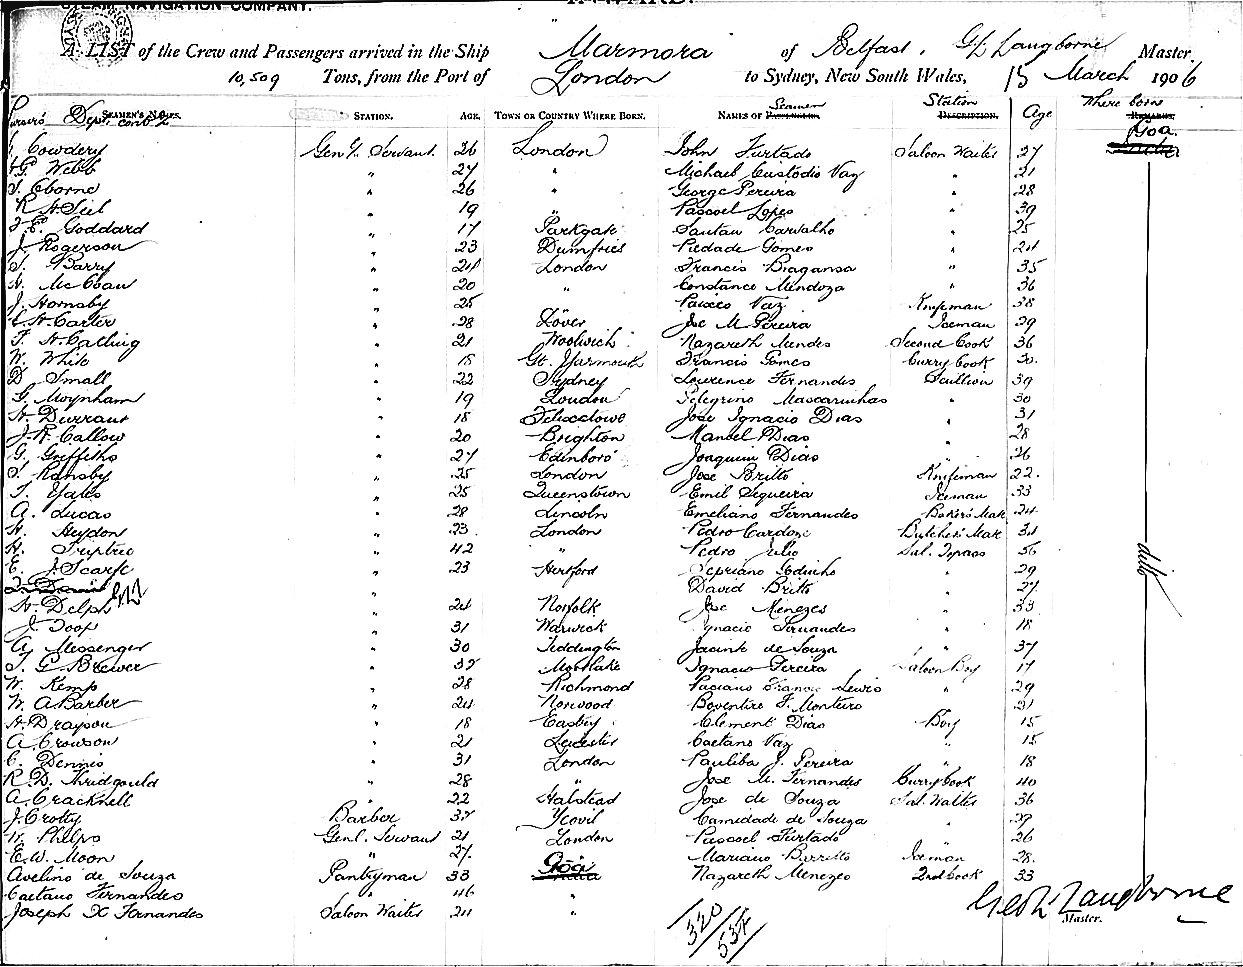 STEAM NAVIGATION COMPANY.
INWARD.
A LIST of the Crew and Passengers arrived in the Ship Marmora of Belfast, G L Langborne Master.
10,509 Tons, from the Port of London to Sydney, New South Wales, 15 March 1906
Purser's Dept. cont'd
SEAMEN'S NAMES. STATION. AGE. TOWN OR COUNTRY WHERE BORN. NAMES OF Seamen Station DESCRIPTION. Age Where born REMARKS.
Cowdery Gen'l. Servant 26 London John Furtado Saloon Waiter 27 Goa
G. Webb " 27 " Michael Custodio Vaz " 21
Eborne " 26 " George Pereira " 28
R. H. Seel " 19 " Pascoel Lopes " 39
F. E. Goddard " 17 Parkgate Santan Carvalho " 25
J. Rogerson " 23 Dumfries Piedade Gomes " 24
Barry " 24 London Francis Bragansa " 35
McCoan " 20 " Constance Mendoza " 36
J. Hornsby " 25 Vaz Knifeman 38
H. Carter " 28 Dover Joe M. Pereira Iceman 29
F. H. Catling " 21 Woolwich Nazareth Mendes Second Cook 36
W. White " 18 Gt. Yarmouth Francis Gomes Curry Cook 30
D. Small " 22 Sydney Lourence Fernandes Scullion 39
Moynham " 19 London Pelegrino Mascarinhas " 30
H. Durrant " 18 Felixstowe Jose Ignacio Dias " 31
J. R. Callow " 20 Brighton Manoel Dias " 28
G. Griffiths " 27 Edinboro' Joaquim Dias " 26
Ransby " 25 London Jose Britto Knifeman 22
T. Yates " 25 Queenstown Emil Sequeira Iceman 33
A. Lucas " 28 Lincoln Emeliano Fernandes Baker's Mate 24
H. Heydon " 23 London Pedro Cardoz Butcher's Mate 34
H. Triptree " 42 " Pedro Julio Sal. Topass 56
E. J. Scarfe " 23 Hertford Cepriano Godinho " 29
David Britto " 27
H. Delph " 24 Norfolk Jose Menezes " 33
J. Toop " 31 Warwick Ignacio Fernandes " 18
A. Messenger " 30 Teddington Jacint de Souza " 37
T. G. Brewer " 37 Mortlake Ignacio Pereira Saloon Boy 17
W. Kemp " 28 Richmond Paciano Francis Lewis " 29
W. A. Barber " 24 Norwood Boventire F. Monteiro 21
H. Drayson " 18 Easby Clement Dias Boy 15
A. Crowson " 21 Leicester Caetano Vaz " 15
C. Dennis " 31 London Pauliba J. Pereira " 18
R. D. Thridgould " 28 " Jose M. Fernandes Curry Cook 40
A. Cracknell " 22 Halstead Jose de Souza Sal. Waiter 36
J. Crotty Barber 37 Yeovil Camidade de Souza " 39
W. Phelps Genl. Servant 21 London Pascoel Furtado " 26
E. W. Moon " 27 " Mariano Barretto Iceman 28
Avelino de Souza Pantryman 33 Goa Nazareth Menezes 2nd Cook 33
Caetano Fernandes " 46 "
Joseph X Fernandes Saloon Waiter 24 "
ditto
320/534
Geo L Langborne
Master.